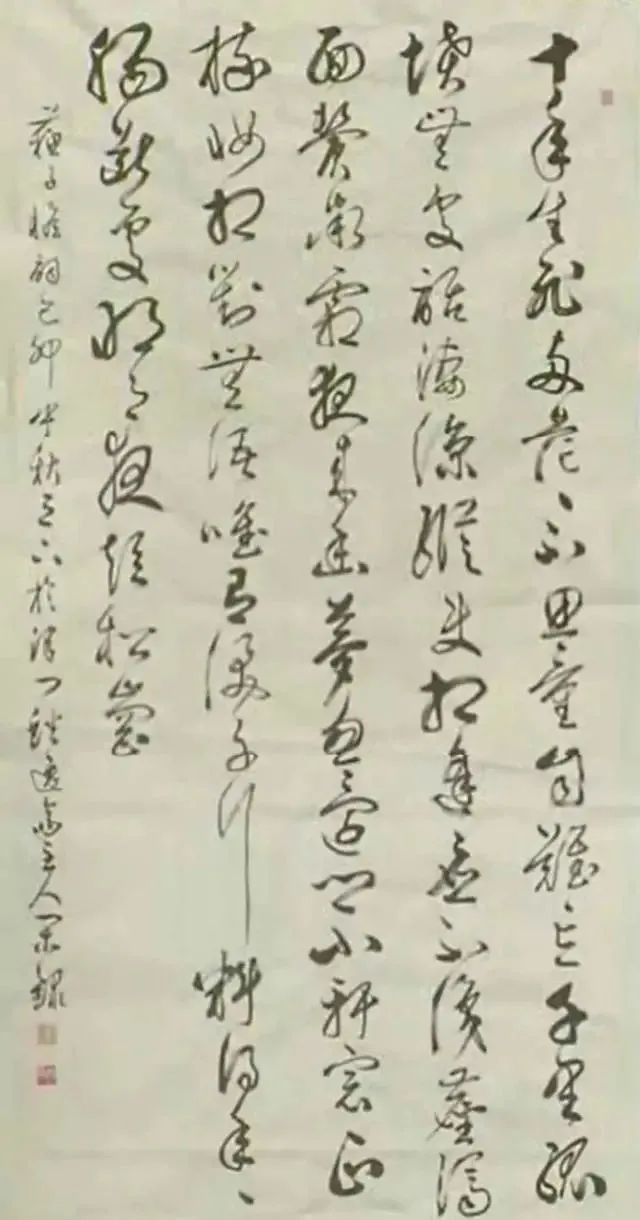 十年生死两茫、不思量自难忘千里孤
坟无处话凄凉纵使相逢应不识尘满
面鬓微霜夜来幽梦忽还乡小轩窗正
梳妆相对无语唯有泪千行料得年、
肠断处明月夜短松冈
苏子瞻词己卯中秋之下于津门主人录